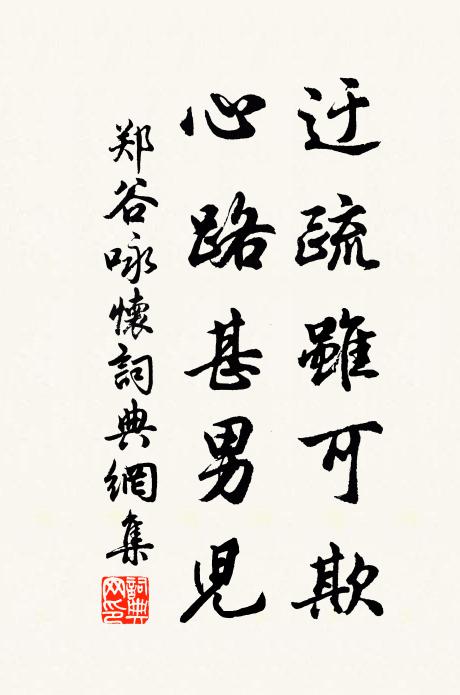 迂疏雖可欺
心路甚男兒
郑谷咏懷詞典網集
詞典网印